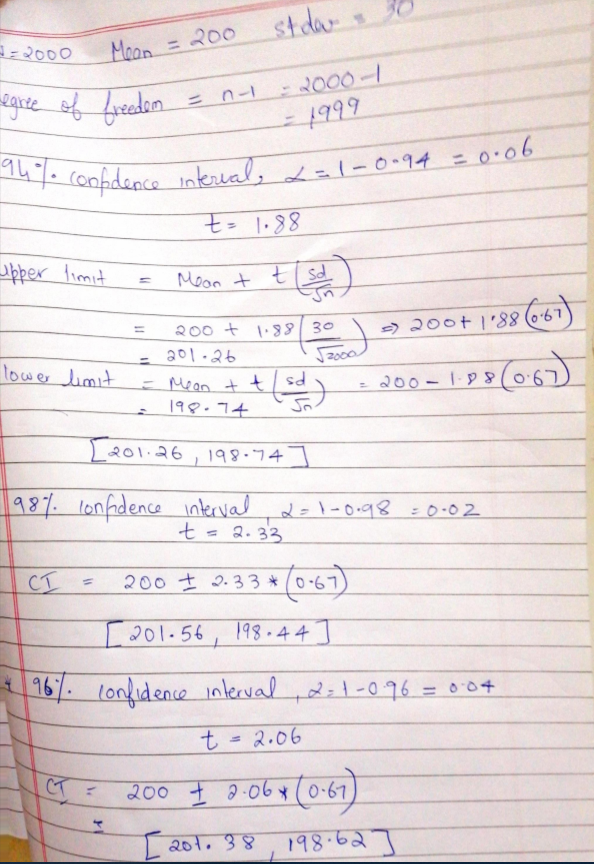 =2000 Mean = 200 st dev = 30
egree of freedom = n-1 = 2000-1
= 1999
94% confidence interval, α = 1-0.94 = 0.06
t = 1.88
upper limit = Mean + t (sd/√n)
= 200 + 1.88 (30/√2000) ⇒ 200 + 1.88 (0.67)
= 201.26
lower limit = Mean + t (sd/√n) = 200 - 1.88 (0.67)
= 198.74
[201.26, 198.74]
98% confidence interval, α = 1-0.98 = 0.02
t = 2.33
CI = 200 ± 2.33 * (0.67)
[201.56, 198.44]
96% confidence interval, α = 1-0.96 = 0.04
t = 2.06
CI = 200 ± 2.06 * (0.67)
=
[201.38, 198.62]